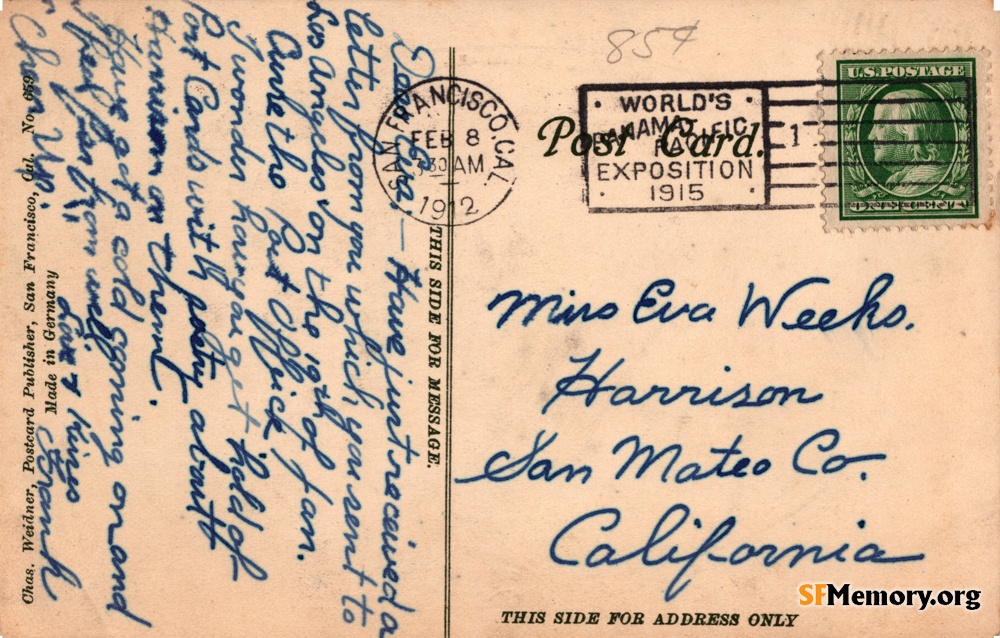 85¢
SAN FRANCISCO, CAL.
FEB 8
7:30 AM
1912
WORLD'S
PANAMA PACIFIC
EXPOSITION
1915
1
Post Card.
U.S. POSTAGE
Dear Eva — Have just received a
letter from you which you sent to
Los Angeles on the 19th of Jan.
to the Post Office.
I wonder how you get hold of
Post Cards with poetry about
Harrison on them.
Have got a cold coming on and
feel far from well.
Love & kisses
THIS SIDE FOR MESSAGE.
Chas. Weidner, Postcard Publisher, San Francisco, Cal. No. 659
Made in Germany
Miss Eva Weeks.
Harrison
San Mateo Co.
California
THIS SIDE FOR ADDRESS ONLY
SFMemory.org